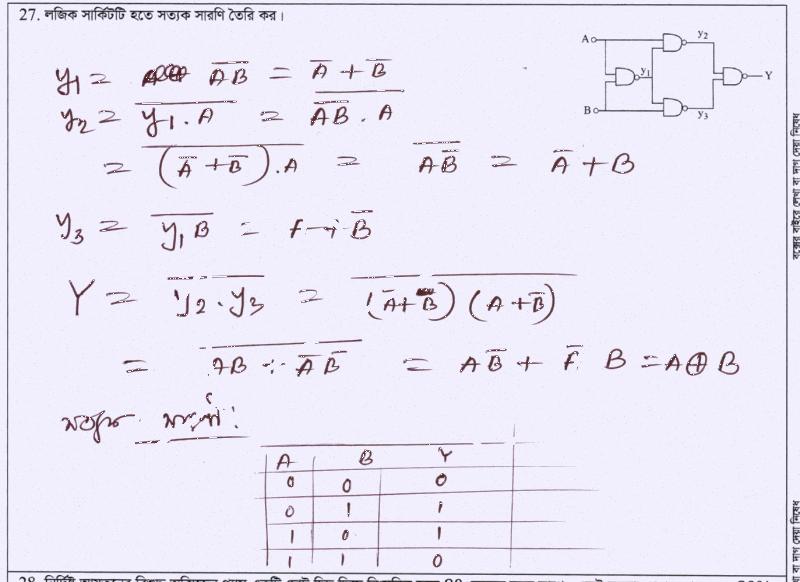 27. লজিক সার্কিটটি হতে সত্যক সারণি তৈরি কর।
A
B
y₁
y₂
y₃
Y
y₁ = A̅B̅ = A̅ + B̅
y₂ = \overline{y₁ . A} = \overline{\overline{AB} . A}
= \overline{(A̅ + B̅) . A} = \overline{AB̅} = A̅ + B
y₃ = \overline{y₁ B} = A + B̅
Y = \overline{y₂ . y₃} = \overline{(A̅ + B) (A + B̅)}
= \overline{AB + A̅ B̅} = AB̅ + A̅ B = A ⊕ B
সত্যক সারণী :
A B Y
0 0 0
0 1 1
1 0 1
1 1 0
বক্সের বাইরে লেখা বা দাগ দেয়া নিষেধ
বা দাগ দেয়া নিষেধ